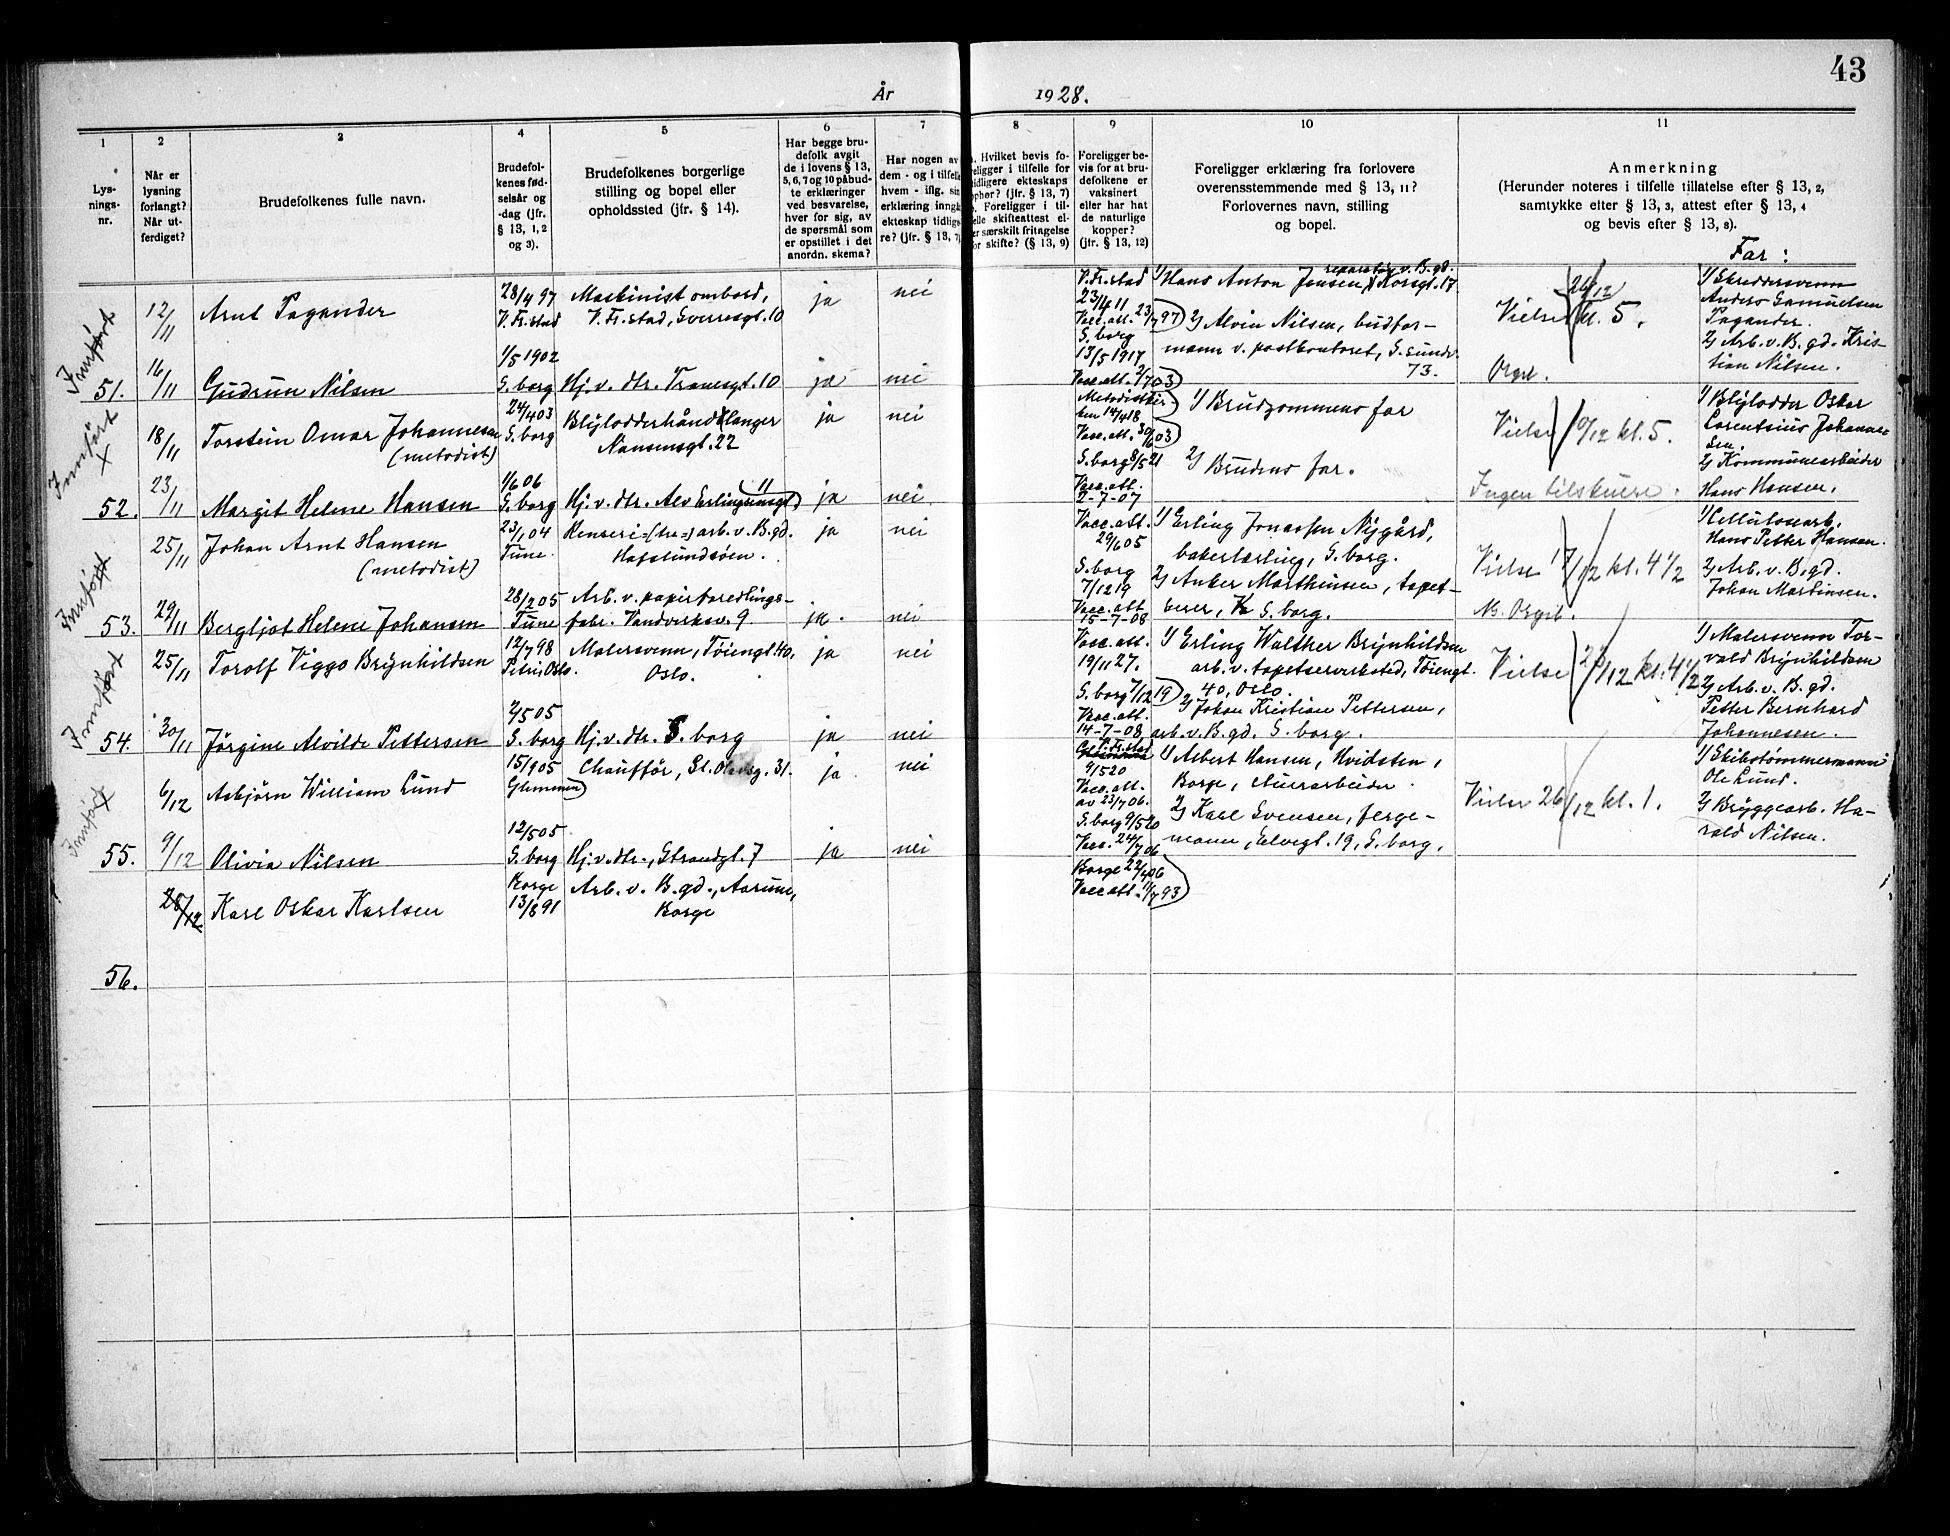 43
År 1928.
1 2 3 4 5 6 7 8 9 10 11
Lys-
nings-
nr.
Når er
lysning
forlangt?
Når ut-
ferdiget?
Brudefolkenes fulle navn.
Brudefol-
kenes fød-
selsår og
-dag (jfr.
§ 13, 1, 2
og 3).
Brudefolkenes borgerlige
stilling og bopel eller
opholdssted (jfr. § 14).
Har begge bru-
defolk avgit
de i lovens § 13,
5, 6, 7 og 10 påbud-
te erklæringer
ved besvarelse,
hver for sig, av
de spørsmål som
er opstillet i det
anordn. skema?
Har nogen av
dem - og i tilfelle
hvem - iflg. sin
erklæring inngå
ekteskap tidlige-
re? (jfr. § 13, 7)
Hvilket bevis fo-
religger i tilfelle for
tidligere ekteskaps
ophør? (jfr. § 13, 7)
Foreligger i til-
felle skifteattest el-
er særskilt fritagelse
for skifte? (§ 13, 9)
Foreligger be-
vis for at bru-
defolkene er
vaksinert
eller har hat
de naturlige
kopper?
(jfr. § 13, 12)
Foreligger erklæring fra forlovere
overensstemmende med § 13, 11?
Forlovernes navn, stilling
og bopel.
Anmerkning
(Herunder noteres i tilfelle tillatelse efter § 13, 2,
samtykke efter § 13, 3, attest efter § 13, 4
og bevis efter § 13, 8).
Far:
Innført
51.
12/11 Arnt Pagander
28/4 97
V. Fr.stad
Maskinist ombord,
V. Fr.stad, Sverresgt. 10
ja nei
V. Fr.stad
23/4 11
Vacc. att. 23/7 97
1/ Hans Anton Jensen, reparatør v. B. gd. Korsgt. 17
2/ Alvin Nilsen, budfor-
mann v. postkontoret, S. sundv.
73.
Vielse 26/12 kl. 5.
Orgel.
1/ Skreddersvenn
Anders Samuelsen
Pagander.
2/ Arb. v. B. gd. Kris-
tian Nilsen.
16/11 Gudrun Nilsen
1/5 1902
S. borg
Hj. v. dtr. Tranesgt. 10
ja nei
S. borg
13/5 1917
Vacc. att. 2/7 03
Innført
X
52.
18/11 Torstein Omar Johannesen
(metodist)
24/4 03
S. borg
Blylodderhåndlanger
Nansensgt. 22
ja nei
Metodistkir-
ken 14/4 18
Vacc. att. 30/6 03
1/ Brudgommens far
2/ Brudens far.
Vielse 10/12 kl. 5.
Ingen tilskuere.
1/ Blylodder Oskar
Lorentsius Johanne-
sen.
2/ Kommunearbeider
Hans Hansen.
23/11 Margit Helene Hansen
1/6 06
S. borg
Hj. v. dtr. Alv Erlingsensgt 11
ja nei
S. borg 8/5 21
Vacc. att.
2-7-07
Innført
53.
25/11 Johan Arnt Hansen
(metodist)
23/1 04
Tune.
Renseri=(tre=) arb. v. B. gd.
Hafslundsøen.
ja nei
Vacc. att.
29/6 05
1/ Erling Jonassen Nygård,
bakerlærling, S. borg.
2/ Anker Marthinsen, tapet-
serer, S. borg.
Vielse 17/12 kl. 4 1/2
Nb. Orgel.
1/ Cellulosearb.
Hans Petter Hansen.
2/ Arb. v. B. gd.
Johan Martinsen.
29/11 Bergljot Helene Johansen
28/2 05
Tune
Arb. v. papirforedlings-
fabr. Vandverksv. 9
ja. nei
S. borg
7/12 19
Vacc. att.
15-7-08
Innført
54.
25/11 Torolf Viggo Brynhildsen
12/7 98
Petrus, Oslo.
Malersvenn, Töiengt. 40,
Oslo.
ja nei
Vacc. att.
19/11 27.
1/ Erling Walther Brynhildsen
arb. v. tapetserverksted, Töiengt.
40, Oslo.
2/ Johan Kristian Pettersen,
arb. v. B. gd. S. borg.
Vielse 2/12 kl. 4 1/2
1/ Malersvenn Tor-
vald Brynhildsen
2/ Arb. v. B. gd.
Petter Bernhard
Johannesen.
30/11 Jörgine Alvilde Pettersen
2/5 05
S. borg
Hj. v. dtr. S. borg
ja nei
S. borg 7/12 19
Vacc. att.
14-7-08
Innført
55.
6/12 Asbjörn William Lund
15/9 05
Glemmen
Chaufför, St. Olavsg. 31.
ja nei
V. Fr. stad
9/5 20
Vacc. att.
av 23/7 06.
1/ Albert Hansen, Hvidsten,
Borge, murarbeider.
2/ Karl Svensen, ferge-
mann, Elvegt. 19, S. borg.
Vielse 26/12 kl. 1.
1/ Skibstømmermann
Ole Lund.
2/ Bryggearb. Ha-
rald Nilsen.
9/12 Olivia Nilsen
12/5 05
S. borg
Hj. v. dtr., Strandgt. 7
ja nei
S. borg 9/5 20
Vacc. 24/7 06
56.
28/12 Karl Oskar Karlsen
Borge
13/8 91
Arb. v. B. gd., Aarum,
Borge
Borge 22/4 06
Vacc att. 11/7 93